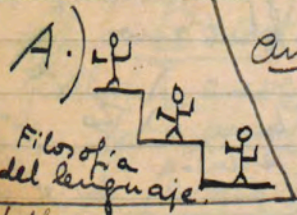 A.)
Filosofía
del lenguaje.